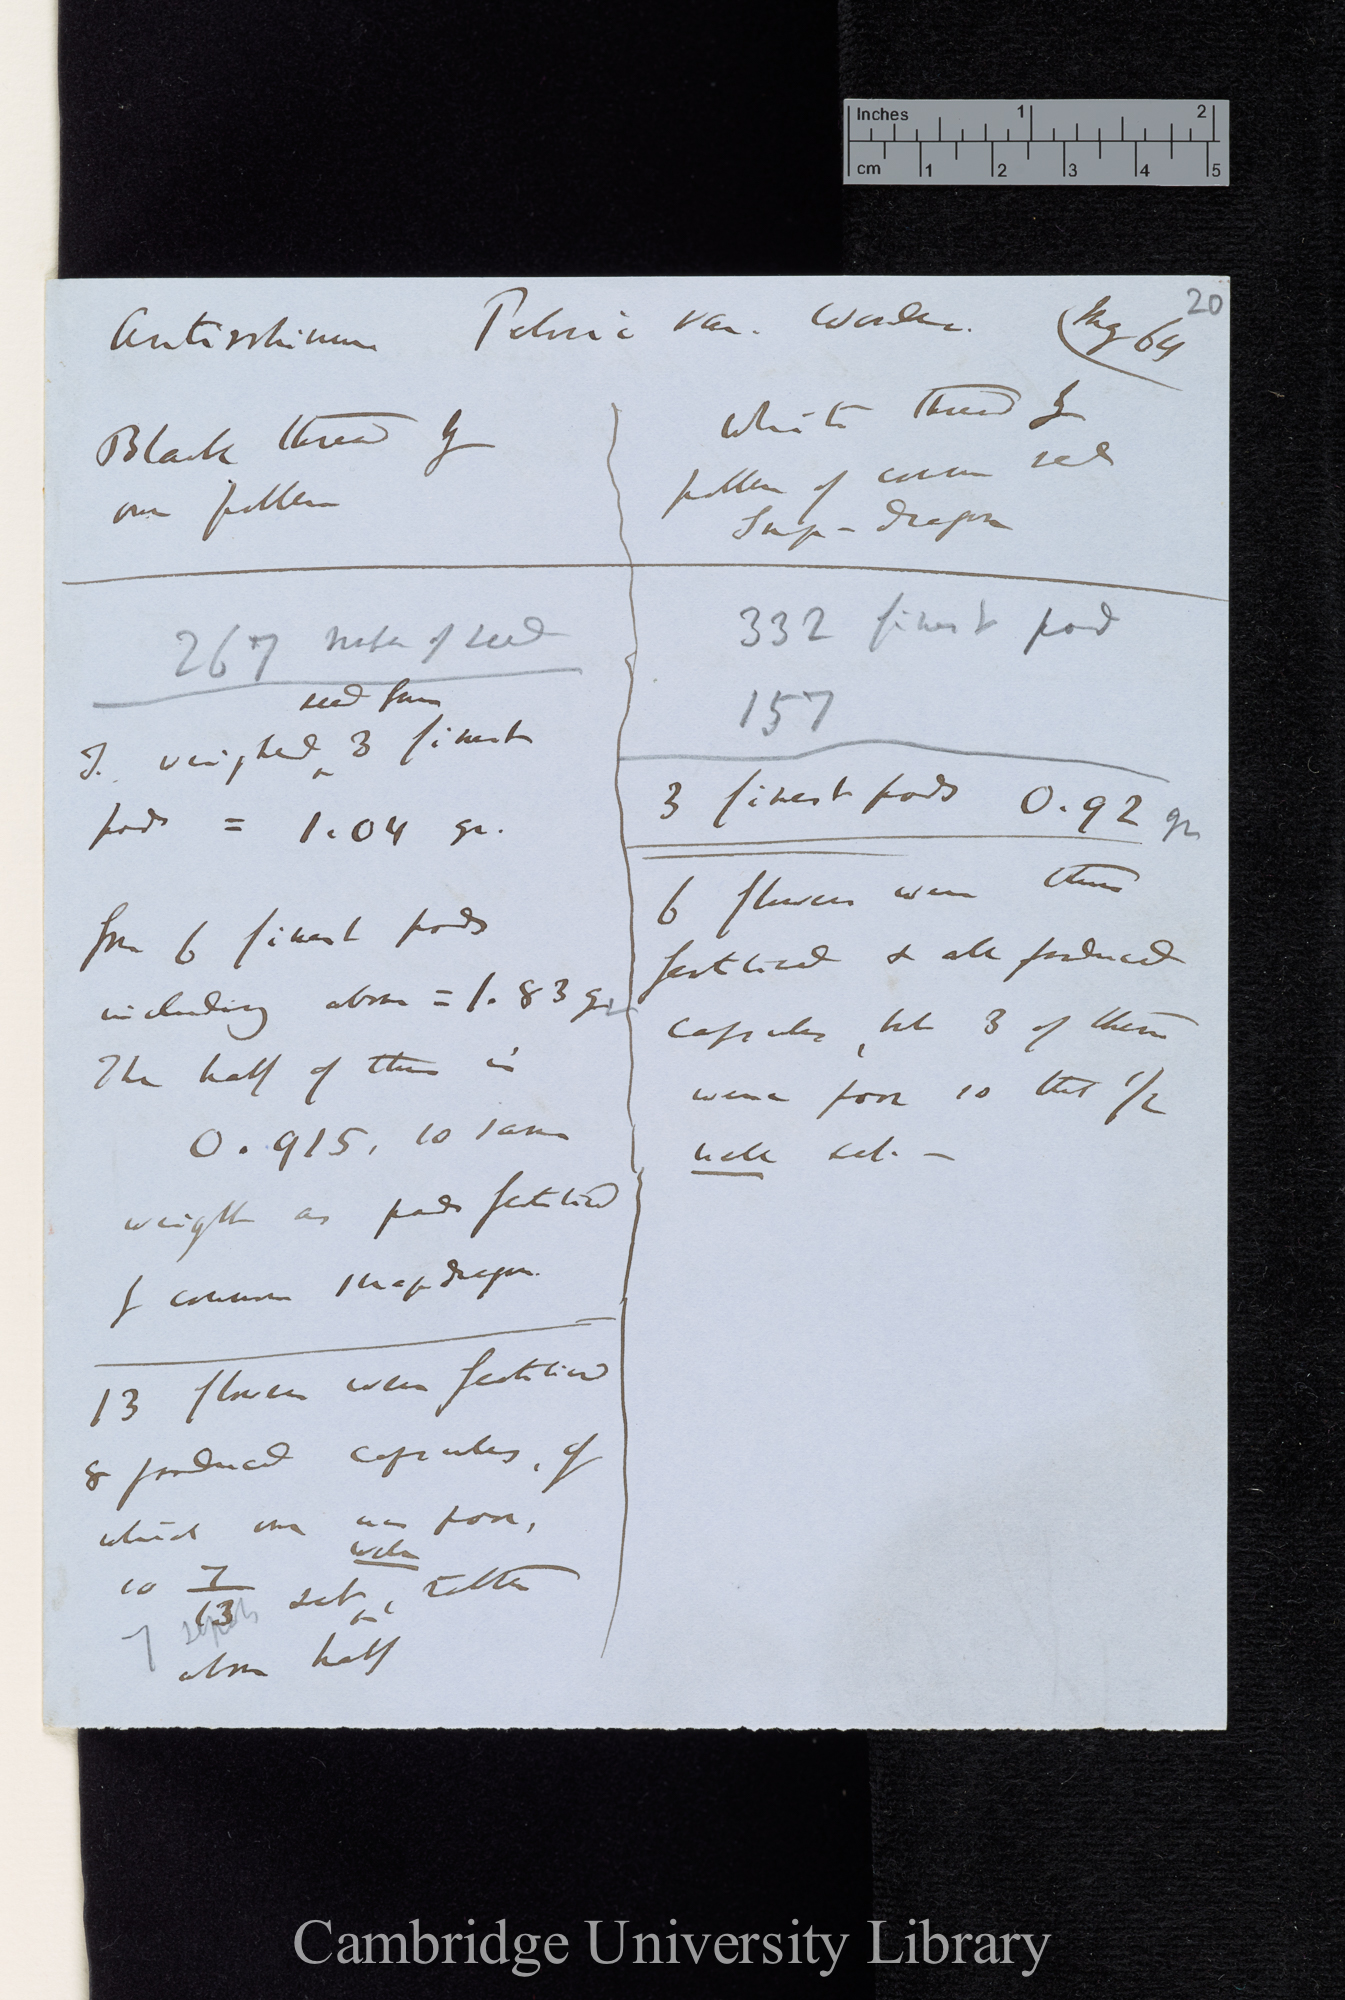 Inches 1 2
cm 1 2 3 4 5
20
Antirrhinum Peloric var. Wonder. Aug 64
Black thread by
own pollen
267 number of seed
seed from
I weighed 3 finest
pods = 1.04 gr.
from 6 finest pods
including above = 1.83 gr
The half of this is
0.915, so same
weight as pods fertilised
by common snapdragon.
13 flowers were fertilised
8 produced capsules, of
which one was poor,
well
so 7/13 set, rather
7
above half
White thread by
pollen of common red
Snap-dragon
332 finest pod
157
3 finest pods 0.92 gr
6 flowers were thus
fertilised & all produced
capsules, but 3 of them
were poor so that 1/2
well set. —
Cambridge University Library